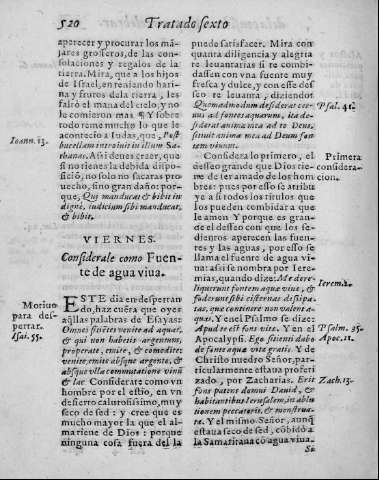 520
Tratado sexto
aparecer y procurar los mã-
jares grosseros, de las con-
solaciones y regalos de la
tierra. Mira, que a los hijos
de Israel, en teniendo hari-
na y frutos de la tierra, les
faltò el mana del cielo, y no
le comieron mas. ¶ Y sobre
todo teme mucho lo que le
acontecio a Iudas, que, Post
Ioann. 13.
buccellam introiuit in illum Sa-
thanas. Assi dene creer, que
si no viene a la deuida dispo
sició, no solo no sacara pro
uecho, sino gran daño: por-
que, Qui manducat & bibit in
dignè, iudicium sibi manducat,
& bibit.
VIERNES.
Considerale como Fuen-
te de agua viua.
Motiuo
para des-
pertar.
Isai. 55.
ESTE dia en despertan
do, haz cuẽta que oyes
aq̃llas palabras de Esayas:
Omnes sitientes venite ad aquas,
& qui non habetis argentum,
properate, emite, & comedite:
venite, emite absque argento, &
absque vlla commutatione vinũ
& lac. Considerate como vn
hombre por el estio, en vn
desierto calurosissimo, muy
seco de sed: y cree que es
mucho mayor la que el al-
ma tiene de Dios: porque
ninguna cosa fuera del la
puede satisfacer. Mira con
quanta diligencia y alegria
te leuantarias si te combi-
dassen con vna fuente muy
fresca y dulce, y con esse des
seo te leuanta, diziendo:
Quemadmodum desiderat cer-
uus ad fontes aquarum, ita de-
Psal. 41.
siderat anima mea ad te Deus,
sitiuit anima mea ad Deum fon
tem viuum.
Considera lo primero, el
Primera
considera-
cion.
desseo grande que Dios tie-
ne de ser amado de los hom
bres: pues por esso se atribu
ye a si todos los titulos que
los pueden combidar a que
le amen Y porque es gran-
de el desseo con que los se-
dientos apetecen las fuen-
tes y las aguas, por esso se
llama el fuente de agua vi-
ua: assi se nombra por Iere-
mias, quando dize: Me dere-
liquerunt fontem aquæ viuæ, &
Ierem. 2.
foderunt sibi cisternas dissipa-
tas, quæ continere non valent a-
quas. Y en el Psalmo se dize:
Apud te est fons vitæ. Y en el
Psalm. 35.
Apocalypsi. Ego sitienti dabo
Apoc. 21.
de fonte aquæ vitæ gratis. Y de
Christo nuestro Señor, par-
ticularmente estaua profeti
zado, por Zacharias. Erit
Zach. 13.
fons patens domui Dauid, &
habitantibus Ierusalem, in ablu
tionem peccatoris, & menstrua-
tæ. Y el mismo Señor, aunq̃
estaua seco de sed, cõbidò a
la Samaritana cõ agua viua.